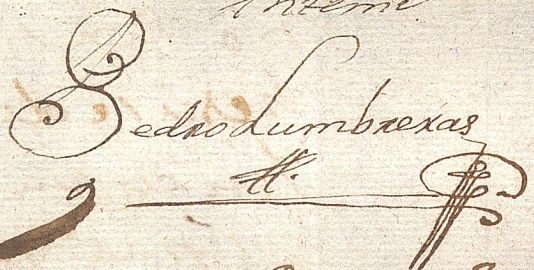 Pedro Lumbreras